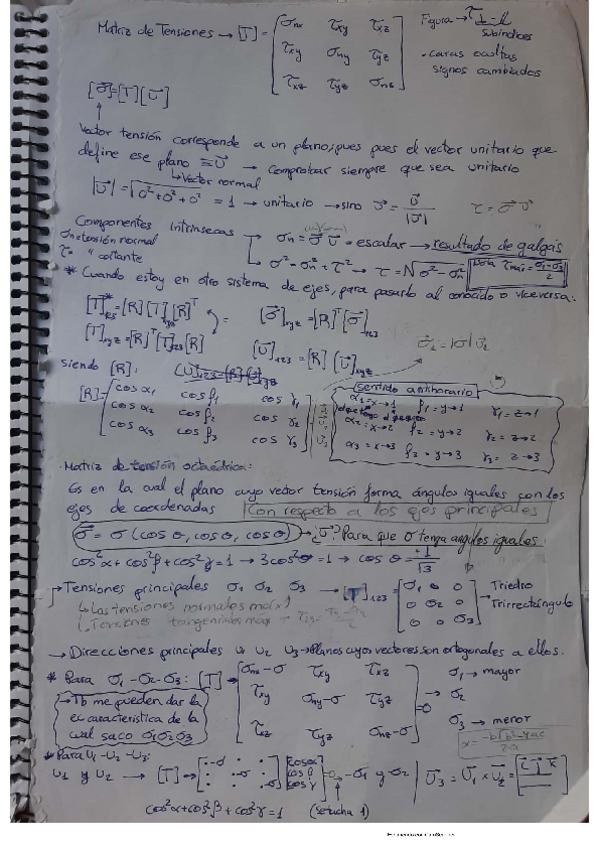 Matriz de Tensiones → [T] = [σnx τxy τxz
τxy σny τyz
τxz τyz σnz]
Figura → τ
subíndices
· caras ocultas
signos cambiados
[σ⃗] = [T] [U⃗]
Vector tensión corresponde a un plano, pues pues el vector unitario que
define ese plano ≡ U⃗ → Comprobar siempre que sea unitario
↳ Vector normal
|U⃗| = √(0² + 0² + 0²) = 1 → unitario → sino U⃗ = U⃗/|U⃗| τ = σ⃗ U⃗
Componentes intrínsecas
σn = tensión normal
τ = " cortante
σn = σ⃗ U⃗ = escalar → resultado de galgas
σ² = σn² + τ² → τ = √(σ² - σn²) Nota τmax = (σ1 - σ3)/2
* Cuando estoy en otro sistema de ejes, para pasarlo al conocido o viceversa:
[T]*123 = [R] [T]xyz [R]ᵀ
[σ⃗]xyz = [R]ᵀ [σ⃗]123
[T]xyz = [R]ᵀ [T]123 [R]
[U⃗]123 = [R] [U⃗]xyz
siendo [R]:
[R] = [cos α1 cos β1 cos γ1
cos α2 cos β2 cos γ2
cos α3 cos β3 cos γ3]
sentido antihorario
α1 = x→1 β1 = y→1 γ1 = z→1
α2 = x→2 β2 = y→2 γ2 = z→2
α3 = x→3 β3 = y→3 γ3 = z→3
· Matriz de tensión octaédrica:
Es en la cual el plano cuyo vector tensión forma ángulos iguales con los
ejes de coordenadas Con respecto a los ejes principales
σ⃗ = σ (cos θ, cos θ, cos θ) → ¿U⃗? Para que σ tenga ángulos iguales:
cos²α + cos²β + cos²γ = 1 → 3cos²θ = 1 → cos θ = ±1/√3
→ Tensiones principales σ1 σ2 σ3 → [T]123 = [σ1 0 0
0 σ2 0
0 0 σ3]
→ Triedro
Trirrectángulo
↳ Las tensiones normales máx
→ Direcciones principales U1 U2 U3 → Planos cuyos vectores son ortogonales a ellos.
* Para σ1 - σ2 - σ3: [T] → [σnx-σ τxy τxz
τxy σny-σ τyz
τxz τyz σnz-σ] = 0
σ1 → mayor
σ2
σ3 → menor
→ Tb me pueden dar la
ec característica de la
cual saco σ1 σ2 σ3
* Para U1 - U2 - U3:
U1 y U2 → [T] → [·-σ · ·
· ·-σ ·
· · ·-σ] [cos α
cos β
cos γ] = 0 → σ1 y σ2 | U⃗3 = U⃗1 × U⃗2 = [i j k]
cos²α + cos²β + cos²γ = 1 (se tacha 1)